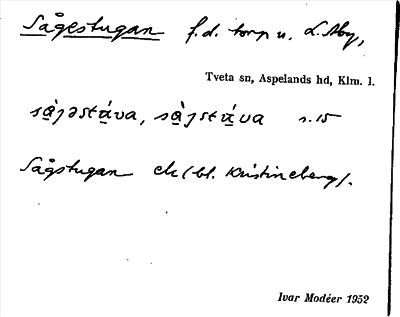 Sågestugan f.d. torp u. L. Aby,
Tveta sn, Aspelands hd, Klm. l.
sạ̀ɡəstá̤va, sạ̀ɡstá̤va s. 15
Sågstugan ek (bl. Kristineberg).
Ivar Modéer 1952